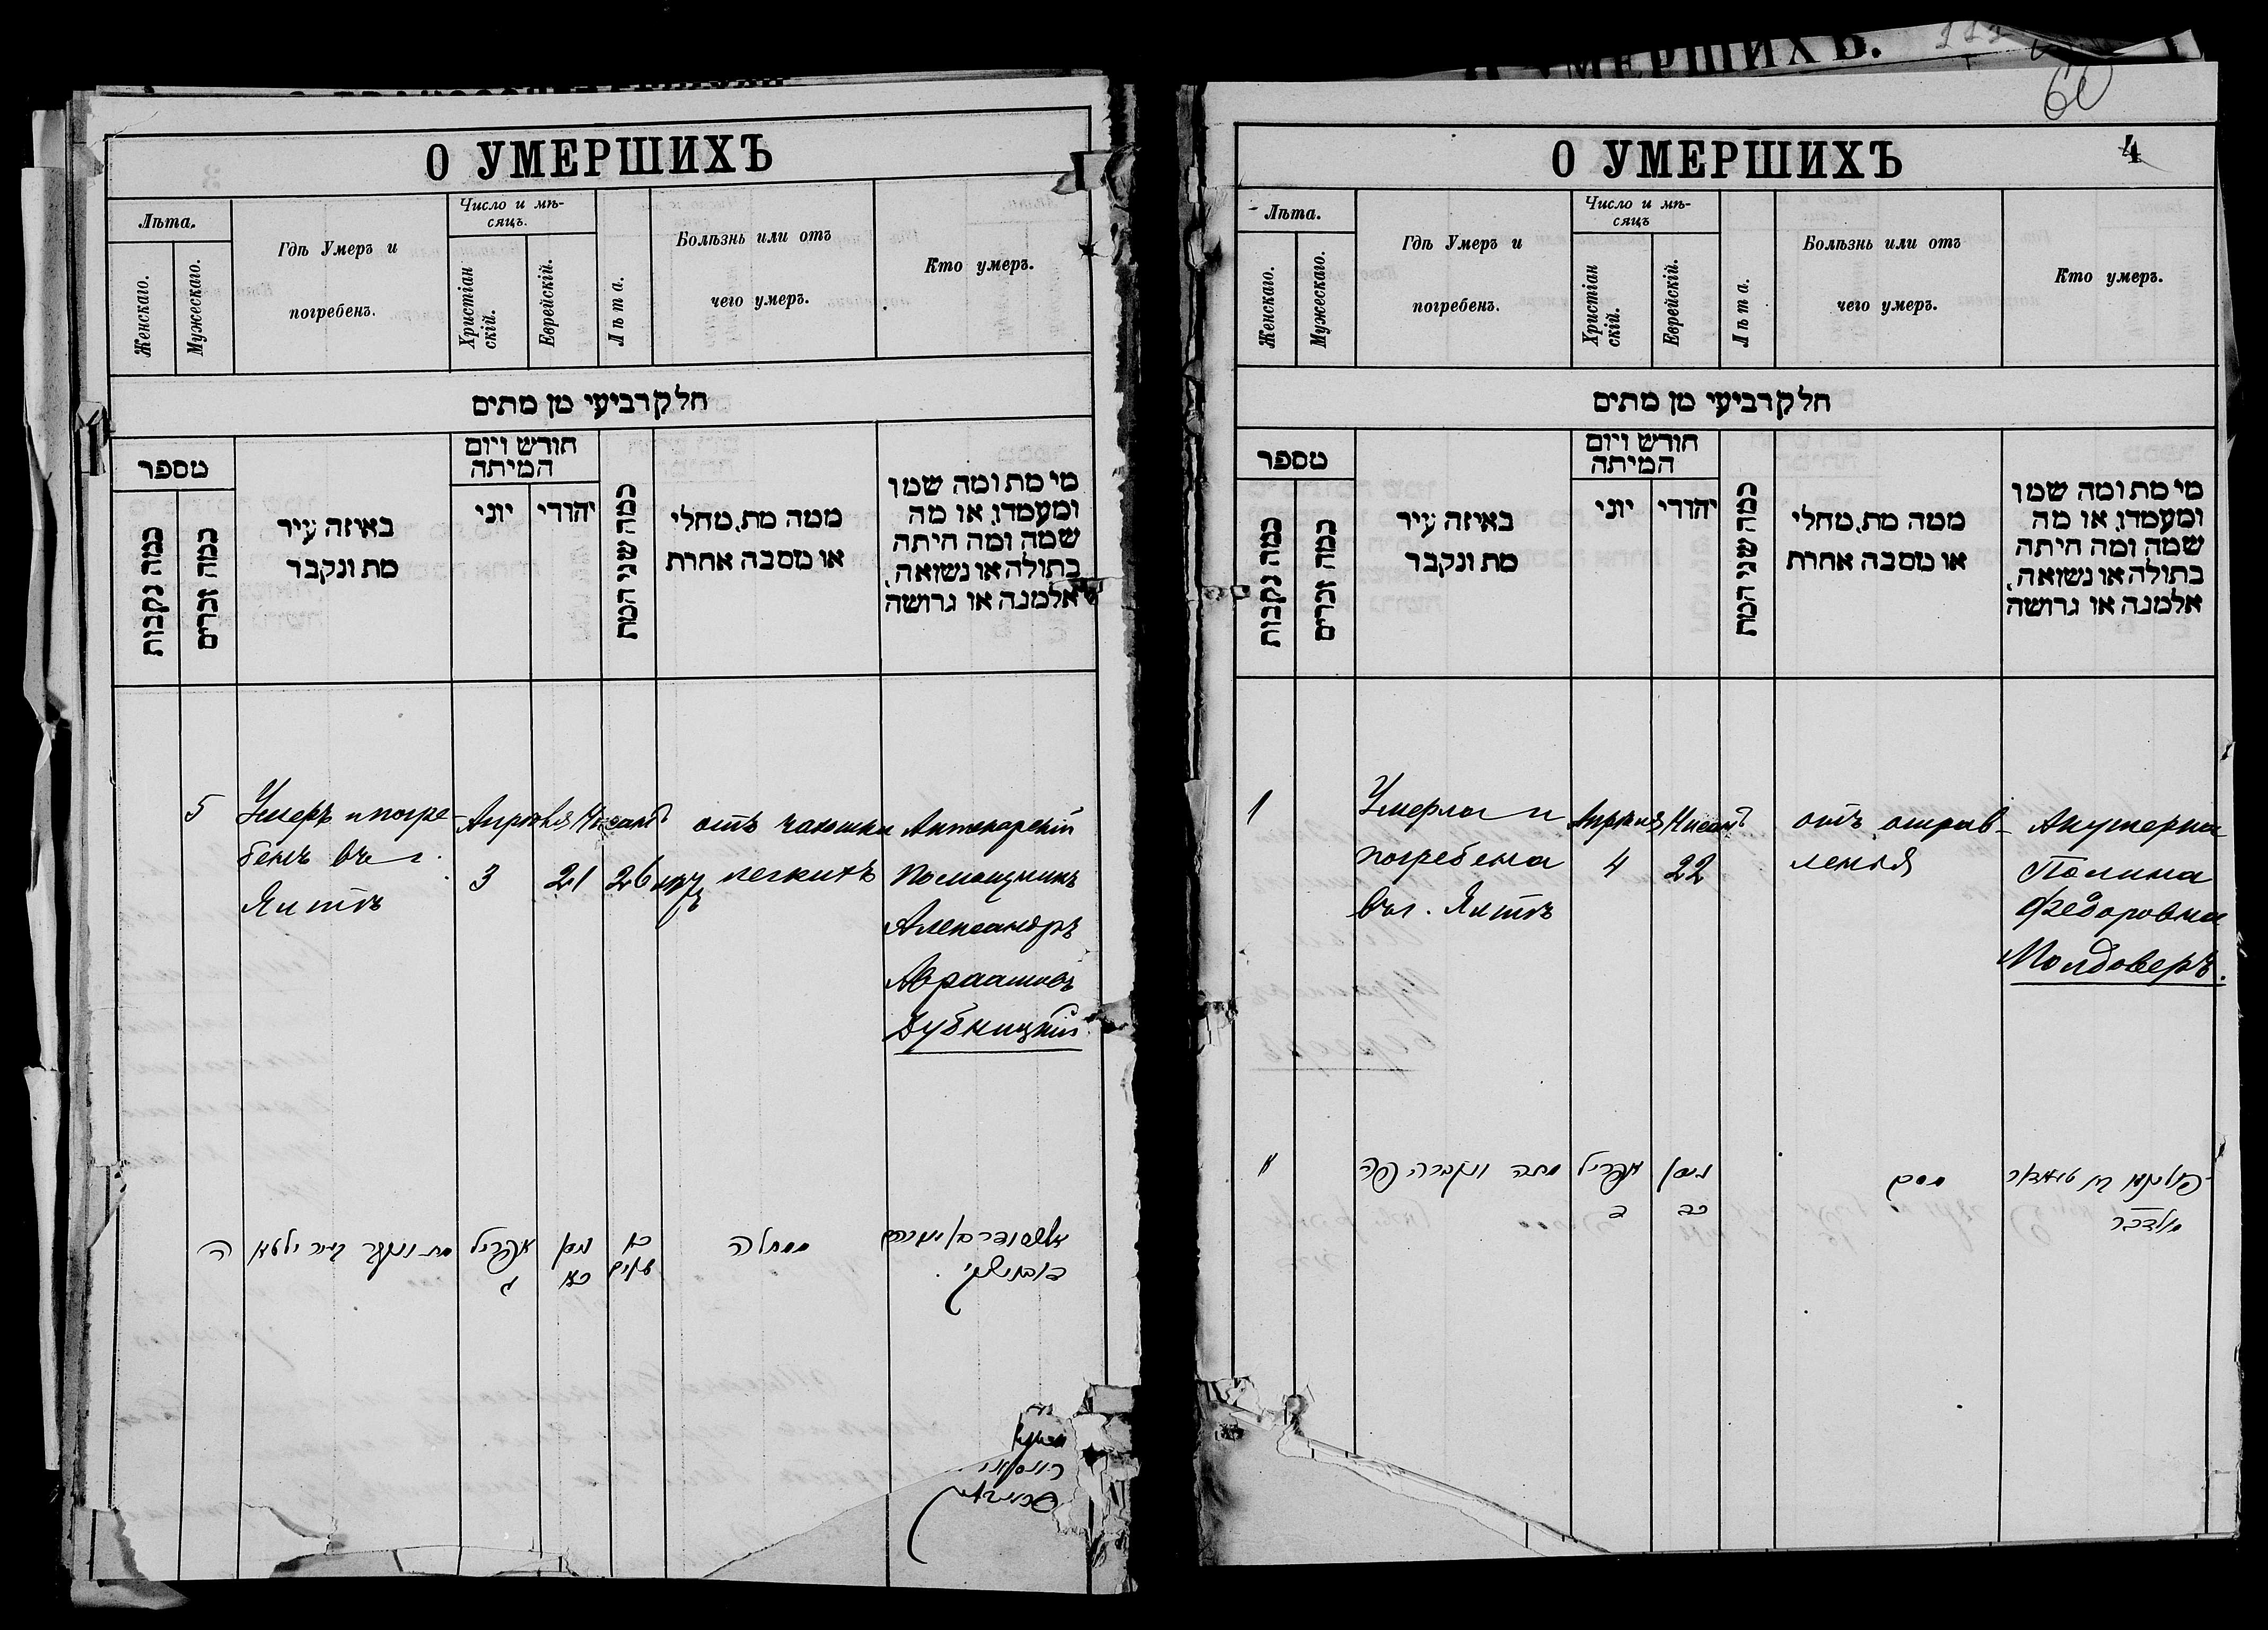 О УМЕРШИХЪ
Лѣта.
Женскаго.
Мужескаго.
Гдѣ Умеръ и
погребенъ.
Число и мѣ-
сяцъ.
Христіан
скій.
Еврейскій.
Лѣта.
Болѣзнь или отъ
чего умеръ.
Кто умеръ.
חלק רביעי מן מתים
מספר
כמה נקבות
כמה זכרים
באיזה עיר
מת ונקבר
חודש ויום
המיתה
יוני
יהודי
כמה שני המת
ממה מת, מחלי
או מסבה אחרת
מי מת ומה שמו
ומעמדו, או מה
שמה ומה היתה
בתולה או נשואה,
אלמנה או גרושה
5
Умеръ и погре-
бенъ въ г.
Ялтѣ
Апрѣля
3
Нисанъ
21
26
отъ чахотки
легкихъ
Аптекарскій
помощникъ
Александръ
Авраамовъ
Дубницкій
ה
מת ונקבר בעיר ילטא
אפריל
ג
ניסן
כא
כו
שנים
О УМЕРШИХЪ.
60
О УМЕРШИХЪ
4
Лѣта.
Женскаго.
Мужескаго.
Гдѣ Умеръ и
погребенъ.
Число и мѣ-
сяцъ.
Христіан
скій.
Еврейскій.
Лѣта.
Болѣзнь или отъ
чего умеръ.
Кто умеръ.
חלק רביעי מן מתים
מספר
כמה נקבות
כמה זכרים
באיזה עיר
מת ונקבר
חודש ויום
המיתה
יוני
יהודי
כמה שני המת
ממה מת, מחלי
או מסבה אחרת
מי מת ומה שמו
ומעמדו, או מה
שמה ומה היתה
בתולה או נשואה,
אלמנה או גרושה
1
Умерла и
погребена
въ г. Ялтѣ
Апрѣля
4
Нисанъ
22
отъ отрав-
ленія
Акушерка
Полина
Федоровна
Молдоверъ.
א
מתה ונקברה פה
אפריל
ד
ניסן
כב
מסם